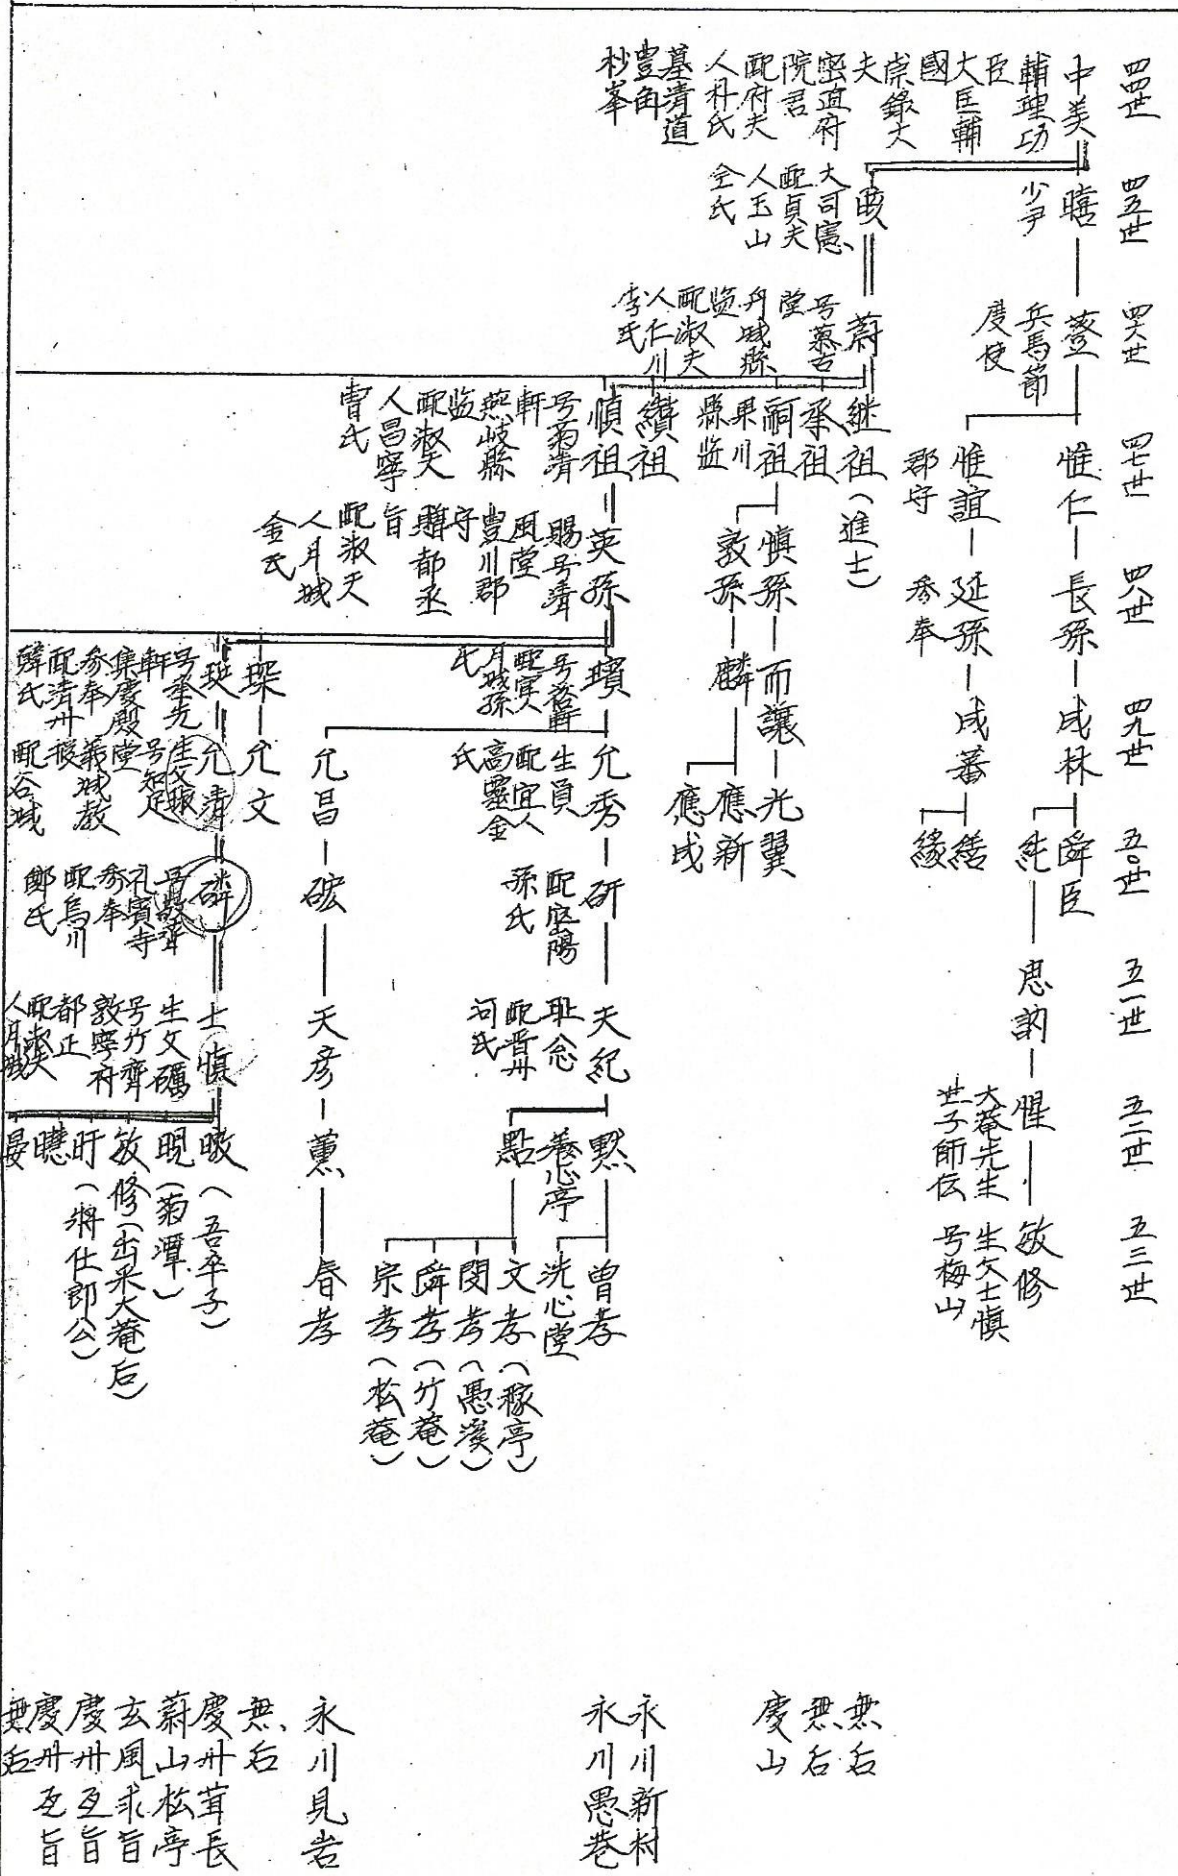 四四世
四五世
四六世
四七世
四八世
四九世
五〇世
五一世
五二世
五三世
中美
輔理功
臣
大匡輔
國
崇錄大
夫
密直府
院君
配府夫
人朴氏
墓清道
豊角
杪峯
暿
少尹
䔲
兵馬節
度使
惟仁
長孫
成林
舜臣
純
思訥
惺
大菴先生
世子師伝
敏修
生父士愼
号梅山
惟誼
郡守
延孫
參奉
成蕃
緣
大司憲
配貞夫
人玉山
全氏
蔚
号慕古
堂
丹城縣
监
配淑夫
人仁川
李氏
継祖(進士)
承祖
嗣祖
果川
縣监
纘祖
順祖
号菊清
軒
燕岐縣
监
配淑夫
人昌寧
曺氏
愼孫
而讓
光翼
敦孫
麟
應新
應成
英孫
賜号清
風堂
豊川郡
守
贈都丞
旨
配淑夫
人月城
金氏
璸
配宜人
月城孫
氏
允秀
生員
配宜人
高靈金
氏
研
配密陽
孫氏
天紀
耻念
配晋州
河氏
默
養心亭
曽孝
洗心堂
點
文孝(稼亭)
閔孝(愚溪)
舜孝(竹菴)
宗孝(松菴)
允昌
硡
天彦
薰
春孝
琛
允文
号承先
軒
集慶殿
參奉
配清州
韓氏
允清
生父璸
号知足
堂
義城教
授
配谷城
磷
礼賓寺
參奉
配烏川
鄭氏
士愼
生父礪
号竹齊
敦寧府
都正
配淑夫
人月城
暾(吾卒子)
晛(菊潭)
敏修(出系大菴后)
旴(將仕郎公)
暳
晏
無后
無后
慶山
永川新村
永川愚巷
永川見岩
無后
慶州茸長
蔚山松亭
玄風求旨
慶州亙旨
慶州亙旨
無后